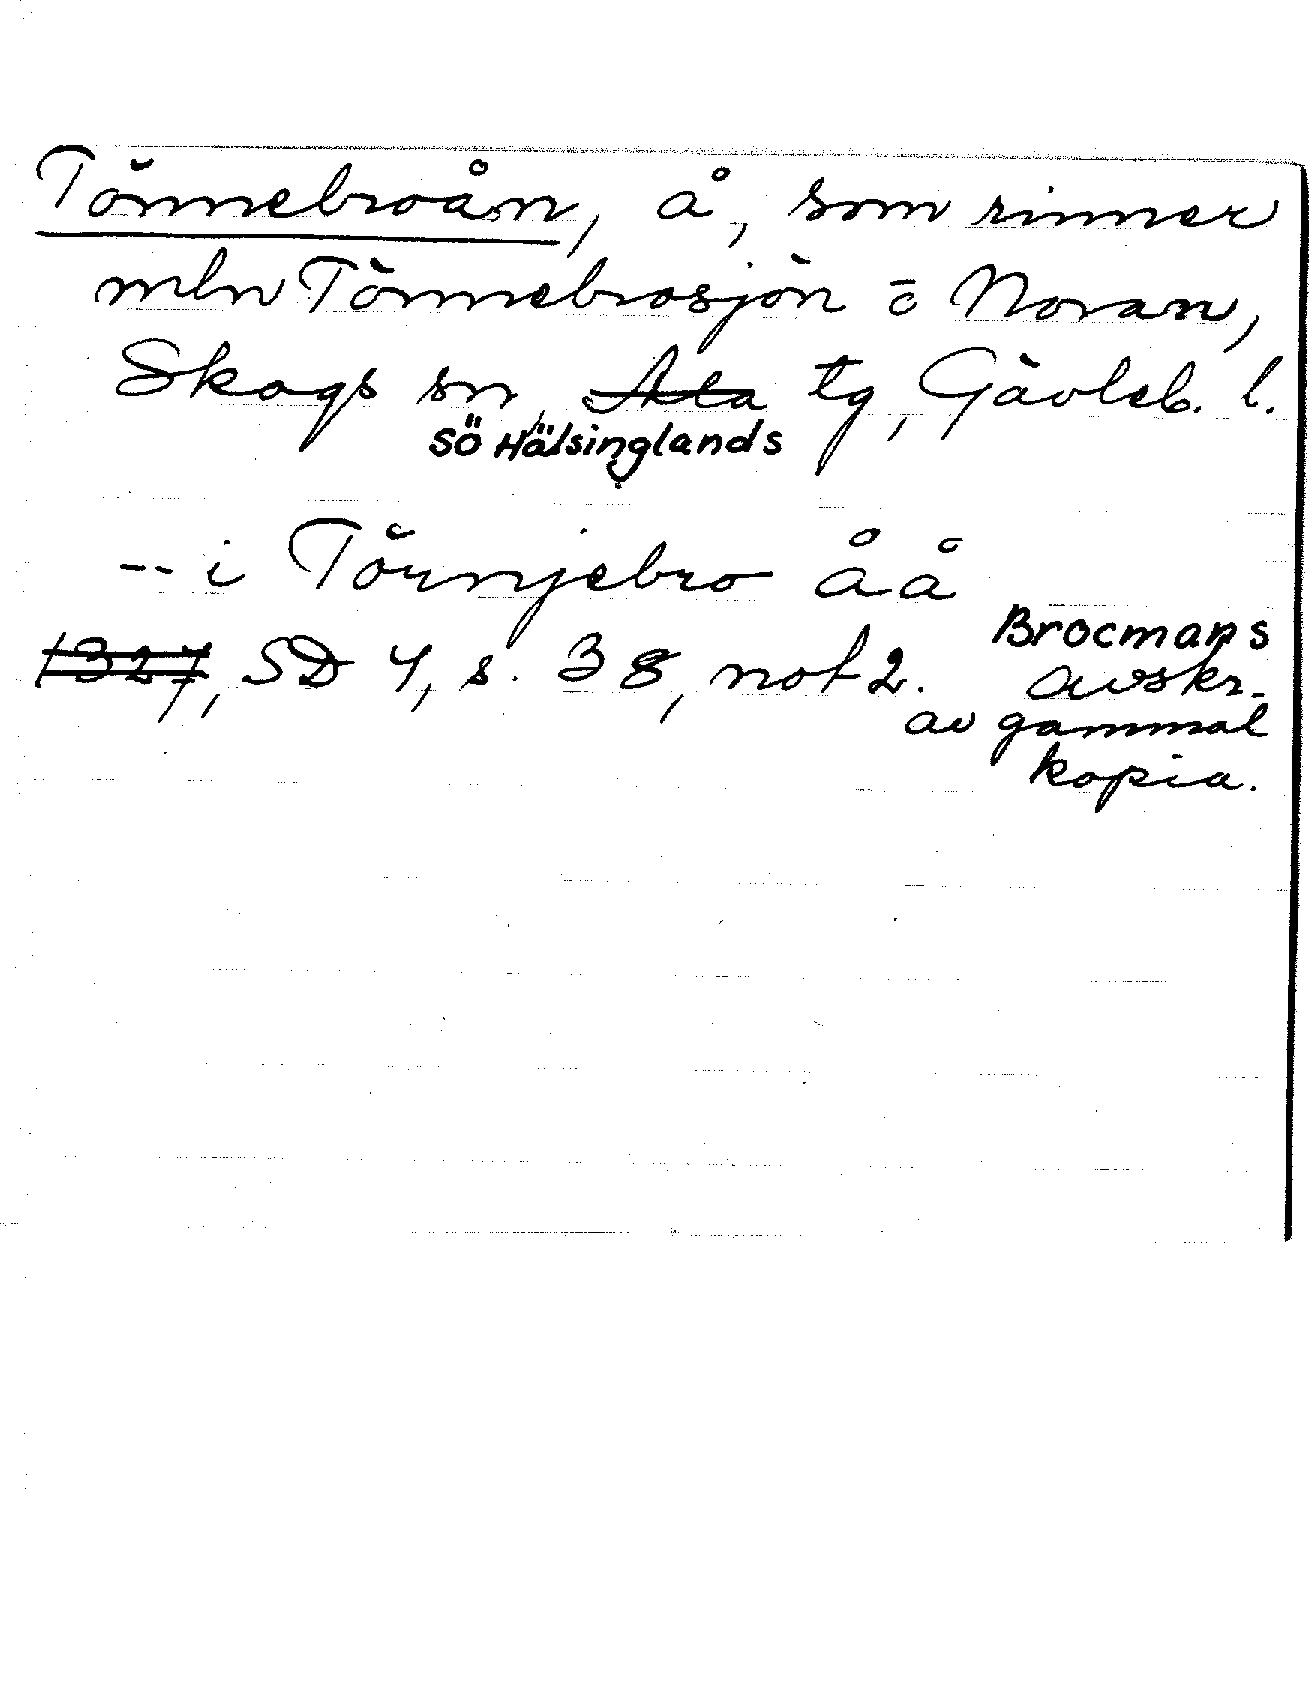 Tönnebroån, å, som rinner
mln Tönnebrosjön o Noran,
Skogs sn, Ala tg, Gävleb. l.
SÖ Hälsinglands
-- i Törnjebro åå
1327, SD 4, s. 38, not 2.
Brocmans
avskr.
av gammal
kopia.